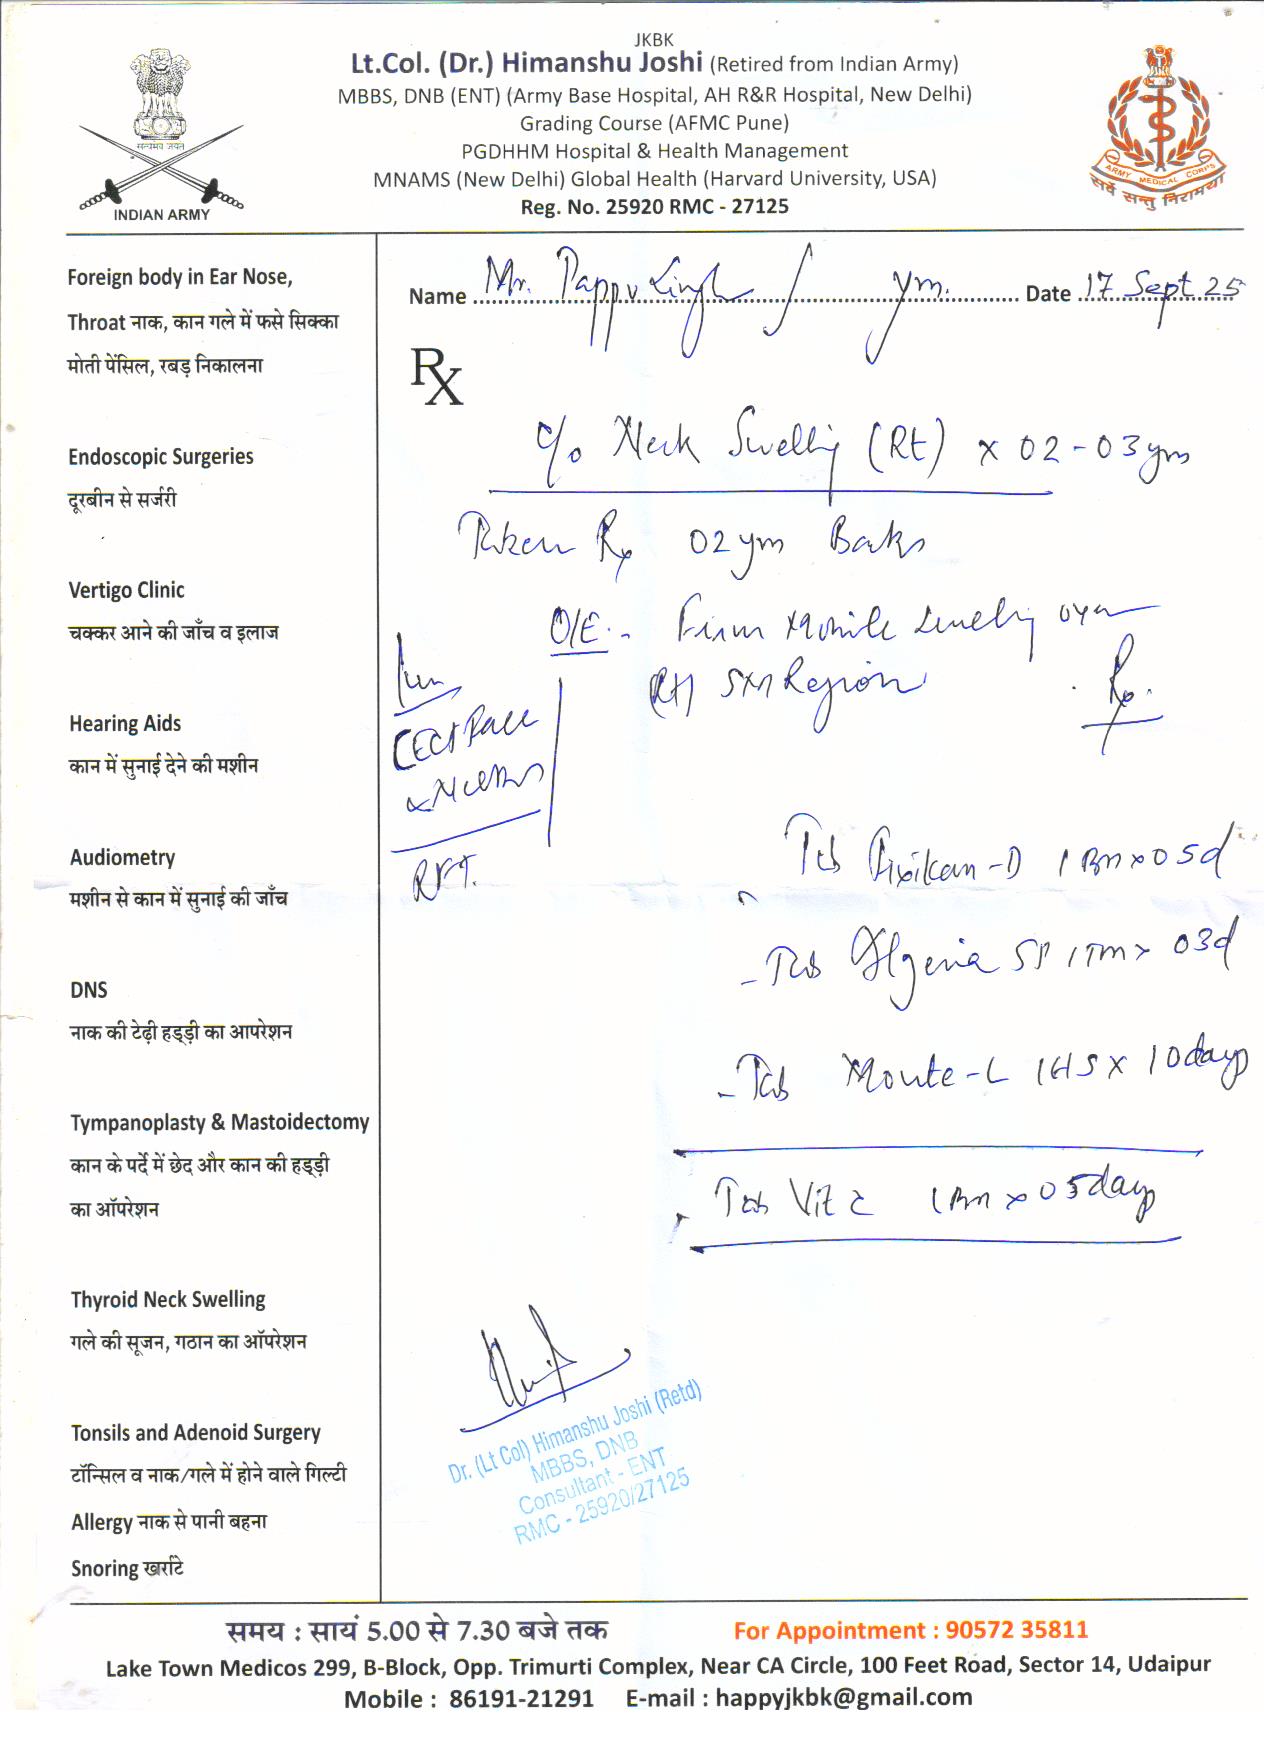 JKBK
Lt.Col. (Dr.) Himanshu Joshi (Retired from Indian Army)
MBBS, DNB (ENT) (Army Base Hospital, AH R&R Hospital, New Delhi)
Grading Course (AFMC Pune)
PGDHHM Hospital & Health Management
MNAMS (New Delhi) Global Health (Harvard University, USA)
Reg. No. 25920 RMC - 27125
सत्यमेव जयते
INDIAN ARMY
ARMY MEDICAL CORPS
सर्वे सन्तु निरामया
Name Mr. Pappu Singh Date 17 Sept 25
Rx
c/o Neck Swelling (Rt) x 02-03 yrs
Taken Rx 02 yrs Back
O/E:- Firm Mobile Swelling over
(Rt) Region
Rx.
CECT Face
& Neck
RFT.
Tab -D 1 BD x 05d
- Tab SP x 03d
- Tab Monte-L 1 HS x 10 days
- Tab Vit C 1 BD x 05 days
Foreign body in Ear Nose,
Throat नाक, कान गले में फसे सिक्का
मोती पेंसिल, रबड़ निकालना
Endoscopic Surgeries
दूरबीन से सर्जरी
Vertigo Clinic
चक्कर आने की जाँच व इलाज
Hearing Aids
कान में सुनाई देने की मशीन
Audiometry
मशीन से कान में सुनाई की जाँच
DNS
नाक की टेढ़ी हड्ड़ी का आपरेशन
Tympanoplasty & Mastoidectomy
कान के पर्दे में छेद और कान की हड्ड़ी
का ऑपरेशन
Thyroid Neck Swelling
गले की सूजन, गठान का ऑपरेशन
Tonsils and Adenoid Surgery
टॉन्सिल व नाक/गले में होने वाले गिल्टी
Allergy नाक से पानी बहना
Snoring खर्राटे
Dr. (Lt Col) Himanshu Joshi (Retd)
MBBS, DNB
Consultant - ENT
RMC - 25920/27125
समय : सायं 5.00 से 7.30 बजे तक
For Appointment : 90572 35811
Lake Town Medicos 299, B-Block, Opp. Trimurti Complex, Near CA Circle, 100 Feet Road, Sector 14, Udaipur
Mobile : 86191-21291 E-mail : happyjkbk@gmail.com